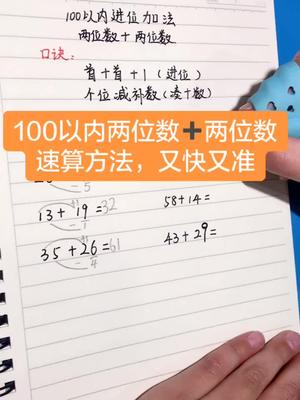 100以内进位加法
两位数+两位数
口诀:
首+首+1(进位)
个位减补数(凑十数)
100以内两位数➕两位数
速算方法，又快又准
-5
+1
13+19=32
-1
58+14=
+1
35+26=61
-4
43+29=